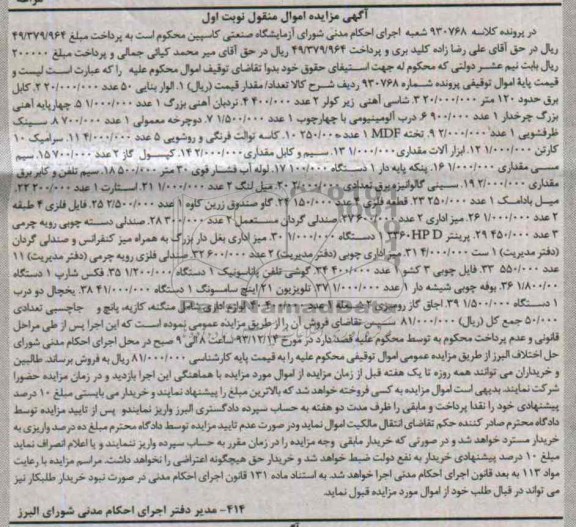 آگهی مزایده اموال منقول نوبت اول
در پرونده کلاسه ۹۳۰۷۶۸ شعبه اجرای احکام مدنی شورای آزمایشگاه صنعتی کاسپین محکوم است به پرداخت مبلغ ۴۹/۳۷۹/۹۶۴
ریال در حق آقای علی رضا زاده کلید بری و پرداخت ۴۹/۳۷۹/۹۶۴ ریال در حق آقای میر محمد کیائی جمالی و پرداخت مبلغ ۲۰۰۰۰۰
ریال بابت نیم عشر دولتی که محکوم له جهت استیفای حقوق خود بدوا تقاضای توقیف اموال محکوم علیه را که عبارت است لیست و
قیمت پایه اموال توقیفی پرونده شماره ۹۳۰۷۶۸ ردیف شرح کالا تعداد/ مقدار قیمت (ریال) ۱. الوار بنائی ۵۰ عدد ۲/۰۰۰/۰۰۰ ۲. کابل
برق حدود ۱۲۰ متر ۲۰/۰۰۰/۰۰۰ ۳. شاسی آهنی زیر کولر ۲ عدد ۴۰۰/۰۰۰ ۴. نردبان آهنی بزرگ ۱ عدد ۱/۰۰۰/۰۰۰ ۵. چهارپایه آهنی
بزرگ چرخدار ۱ عدد ۹۰۰/۰۰۰ ۶. درب آلومینیومی با چهارچوب ۱ عدد ۱/۵۰۰/۰۰۰ ۷. دوچرخه معمولی ۱ عدد ۷۰۰/۰۰۰ ۸. سینک
ظرفشویی ۱ عدد ۲/۰۰۰/۰۰۰ ۹. تخته MDF ۱ عدد ۲۵۰/۰۰۰ ۱۰. کاسه توالت فرنگی و روشویی ۵ عدد ۴/۰۰۰/۰۰۰ ۱۱. سرامیک ۱۰
کارتن ۱/۰۰۰/۰۰۰ ۱۲. ابزار آلات مقداری ۱/۰۰۰/۰۰۰ ۱۳. سیم و کابل مقداری ۲/۰۰۰/۰۰۰ ۱۴. کپسول گاز ۲ عدد ۷۰۰/۰۰۰ ۱۵. سیم
مسی مقداری ۱/۰۰۰/۰۰۰ ۱۶. پنکه پایه دار ۱ دستگاه ۱۰۰/۰۰۰ ۱۷. لوله آب فشار قوی ۳۰ متر ۵۰۰/۰۰۰ ۱۸. سیم تلفن و کابر برق
مقداری ۲/۰۰۰/۰۰۰ ۱۹. سینی گالوانیزه برق تعدادی ۲/۰۰۰/۰۰۰ ۲۰. میل لنگ ۲ عدد ۱/۰۰۰/۰۰۰ ۲۱. استارت ۱ عدد ۲۰۰/۰۰۰ ۲۲.
میل بادامک ۱ عدد ۲۵۰/۰۰۰ ۲۳. قطعه فلزی ۱ عدد ۱۵۰/۰۰۰ ۲۴. گاو صندوق زرین کاوه ۱ عدد ۲/۵۰۰/۰۰۰ ۲۵. فایل فلزی ۴ طبقه
۲ عدد ۱/۰۰۰/۰۰۰ ۲۶. میز اداری ۲ عدد ۶۰۰/۰۰۰ ۲۷. صندلی گردان مستعمل ۲ عدد ۳۰۰/۰۰۰ ۲۸. صندلی دسته چوبی رویه چرمی
۳ عدد ۴۵۰/۰۰۰ ۲۹. پرینتر HP D ۲۳۶۰ ۱ دستگاه ۱/۰۰۰/۰۰۰ ۳۰. میز اداری بغل دار بزرگ به همراه میز کنفرانس و صندلی گردان
(دفتر مدیریت) ۱ ست ۴/۰۰۰/۰۰۰ ۳۱. میز اداری چوبی (دفتر مدیریت) ۲ عدد ۶۰۰/۰۰۰ ۳۲. صندلی فلزی رویه چرمی (دفتر مدیریت) ۱۱
عدد ۵۵۰/۰۰۰ ۳۳. فایل چوبی ۳ کشو ۱ عدد ۴۰۰/۰۰۰ ۳۴. گوشی تلفن پاناسونیک ۱ دستگاه ۱/۲۰۰/۰۰۰ ۳۵. فکس شارپ ۱ دستگاه
۱/۸۰۰/۰۰۰ ۳۶. بوفه چوبی شیشه دار ۱ عدد ۱/۰۰۰/۰۰۰ ۳۷. تلویزیون ۲۱ اینچ سامسونگ ۱ دستگاه ۴/۰۰۰/۰۰۰ ۳۸. یخچال دو درب
۱ دستگاه ۱/۵۰۰/۰۰۰ ۳۹. اجاق گاز رومیزی ۲ شعله ۱ عدد ۴۰۰/۰۰۰ ۴۰. لوازم اداری شامل منگنه، کازیه، پانچ و جاچسبی تعدادی
۵۰/۰۰۰ جمع کل (ریال) ۸۱/۰۰۰/۰۰۰ سپس تقاضای فروش آن را از طریق مزایده عمومی نموده است که این اجرا پس از طی مراحل
قانونی و عدم پرداخت محکوم به توسط محکوم علیه قصد دارد در مورخ ۹۳/۱۲/۱۴ ساعت ۸ الی ۹ صبح در محل اجرای احکام مدنی شورای
حل اختلاف البرز از طریق مزایده عمومی اموال توقیفی محکوم علیه را به قیمت پایه کارشناسی ۸۱/۰۰۰/۰۰۰ ریال به فروش برساند. طالبین
و خریداران می توانند همه روزه تا یک هفته قبل از زمان مزایده از اموال مورد مزایده با هماهنگی این اجرا بازدید و در زمان مزایده حضورا
شرکت نمایند. بدیهی است اموال مزایده به کسی فروخته خواهد شد که بالاترین مبلغ را پیشنهاد نمایند و خریدار می بایستی مبلغ ۱۰ درصد
پیشنهادی خود را نقدا پرداخت و مابقی را ظرف مدت دو هفته به حساب سپرده دادگستری البرز واریز نمایندو پس از تایید مزایده توسط
دادگاه محترم صادر کننده حکم تقاضای انتقال مالکیت اموال نماید ودر صورت عدم تایید مزایده توسط دادگاه محترم مبلغ ده درصد واریزی به
خریدار مسترد خواهد شد و در صورتی که خریدار مابقی وجه مزایده را در زمان مقرر به حساب سپرده واریز ننمایند و یا اعلام انصراف نماید
مبلغ ۱۰ درصد پیشنهادی خریدار به نفع دولت ضبط خواهد شد و خریدار حق هیچگونه اعتراضی را نخواهد داشت. مراسم مزایده با رعایت
مواد ۱۱۳ به بعد قانون اجرای احکام مدنی اجرا خواهد شد. به استناد ماده ۱۳۱ قانون اجرای احکام مدنی در صورت نبود خریدار طلبکار نیز
می تواند در قبال طلب خود از اموال مورد مزایده قبول نماید.
۴۱۴- مدیر دفتر اجرای احکام مدنی شورای البرز